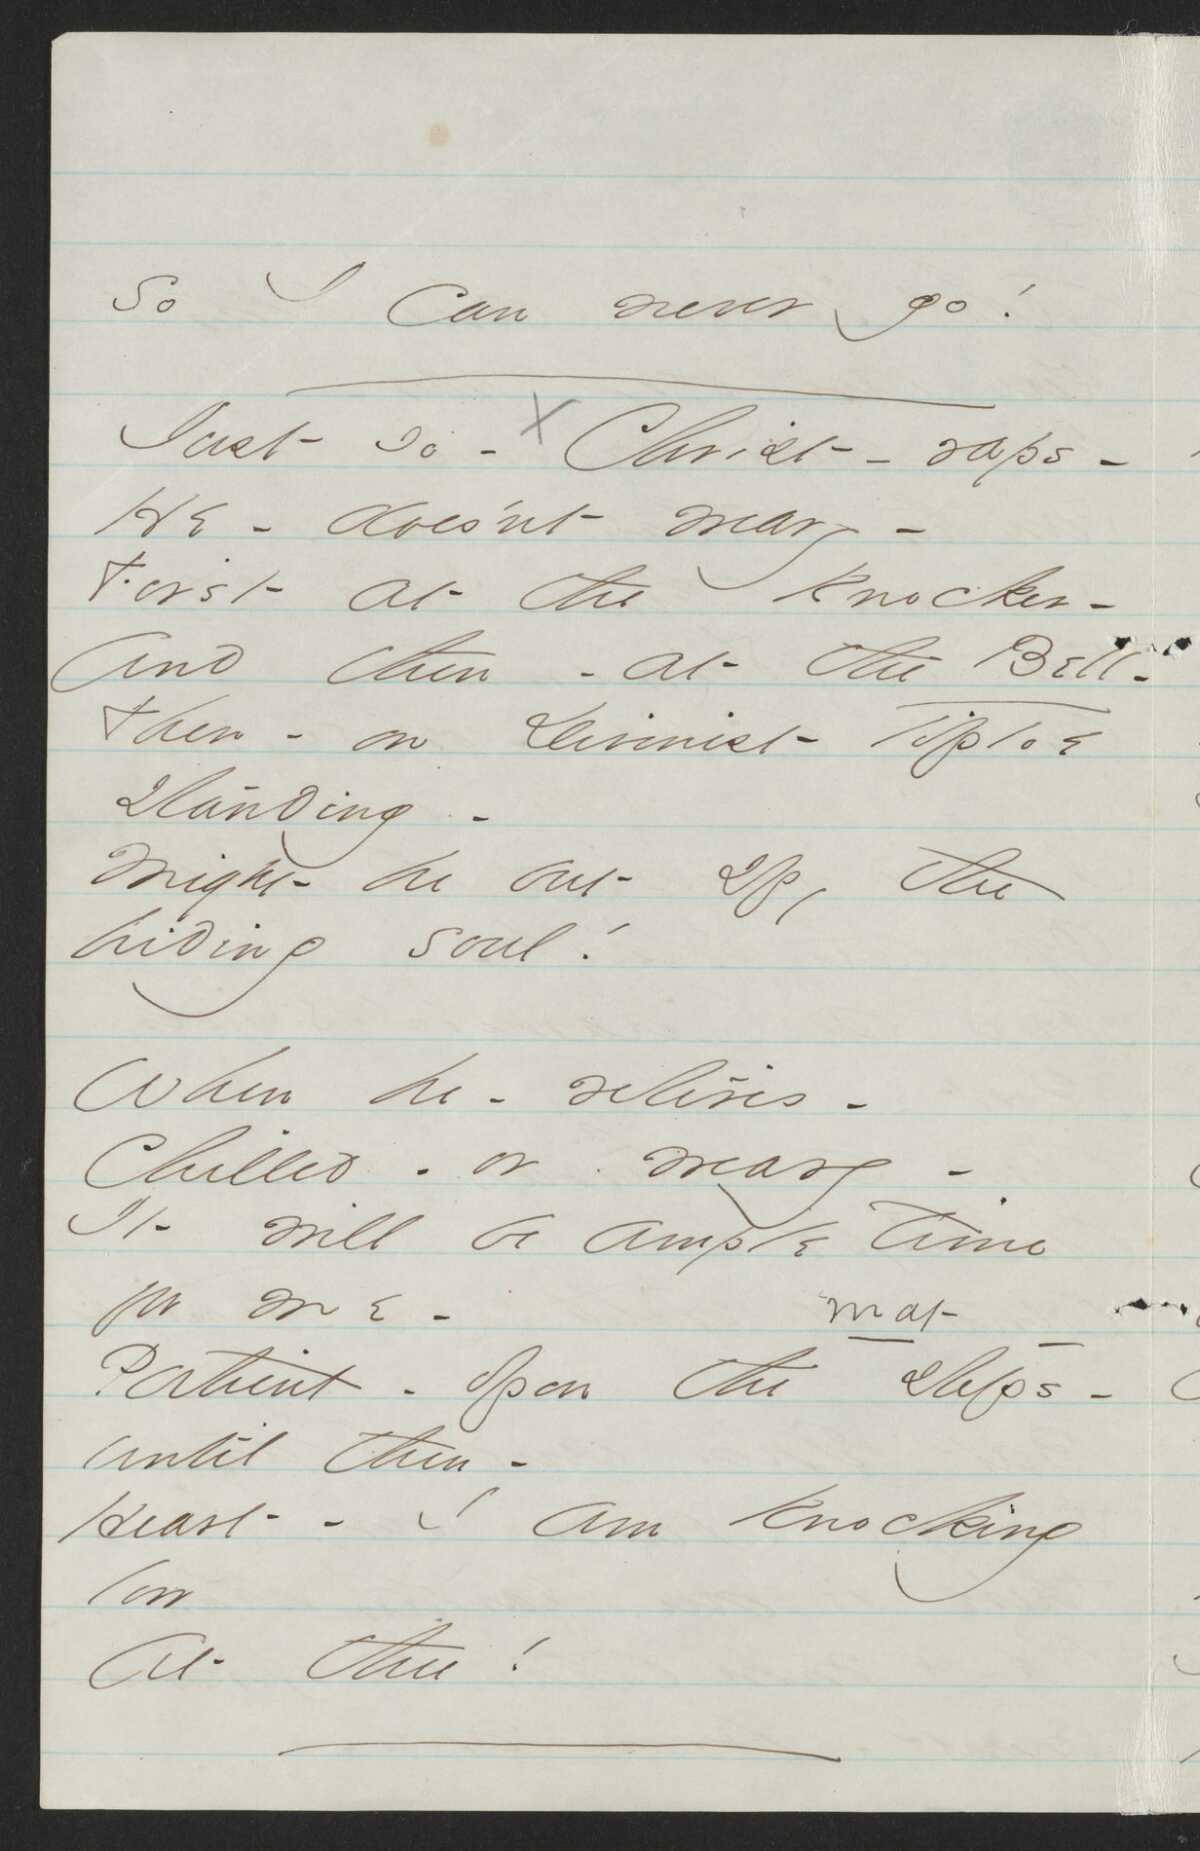 So I can never go!
Just so - X Christ - raps -
He - does'nt weary -
First at the Knocker -
And then - at the Bell -
Then - on Divinest tiptoe
standing -
Might he out spy the
hiding soul!
When he - retires -
Chilled - or weary -
It will be ample time
for me -
mat
Patient - upon the steps -
until then -
Heart - I am knocking
low
At thee!